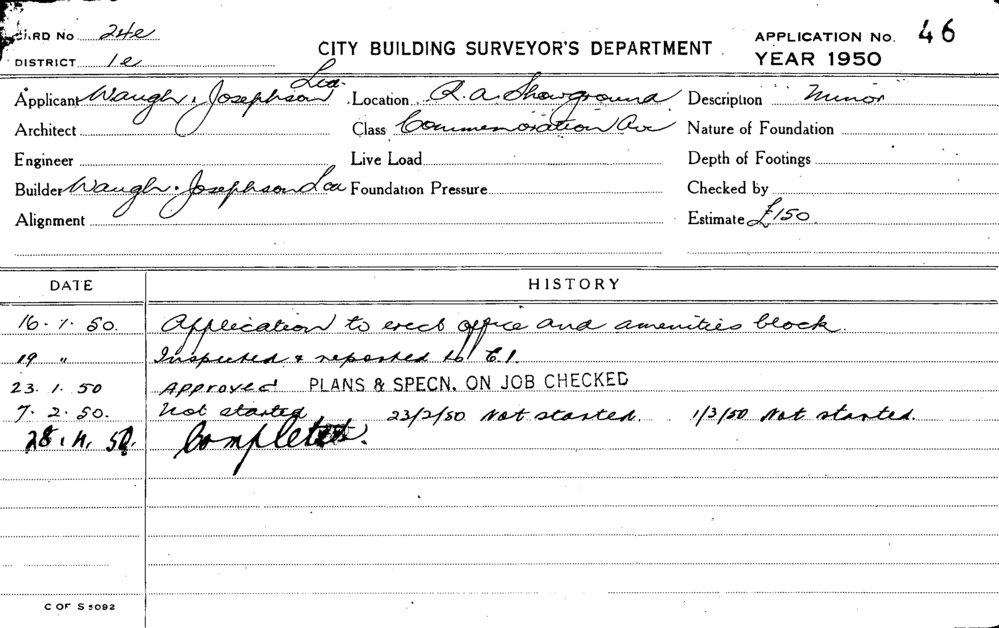 CARD No 24e
DISTRICT 1e
CITY BUILDING SURVEYOR'S DEPARTMENT
APPLICATION No. 46
YEAR 1950
Applicant Waugh & Josephson Ltd. Location R.A. Showground Description Minor
Architect Class Commemoration Av Nature of Foundation
Engineer Live Load Depth of Footings
Builder Waugh & Josephson Ltd Foundation Pressure Checked by
Alignment Estimate £150
DATE HISTORY
16.1.50. Application to erect office and amenities block.
19 " Inspected & reported to C.I.
23.1.50 Approved PLANS & SPECN. ON JOB CHECKED
7.2.50. Not started 23/2/50 Not started. 1/3/50 Not started.
28.4.50. Completed.
C OF S 5092